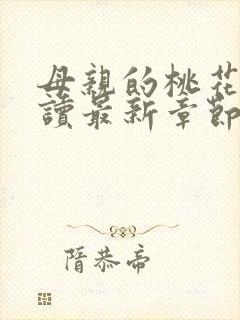 母親的桃花
讀最新章節
隋恭帝